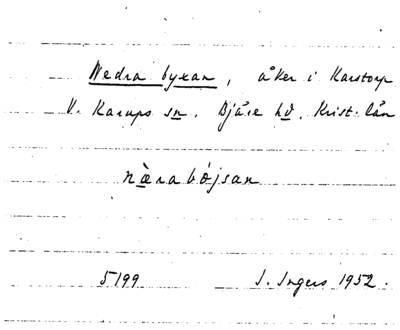 Nedra byxan, åker i Karstorp
V. Karups sn. Bjäre hd. Krist. län
næ̀ra bǿjsan
5199 I. Ingers 1952.